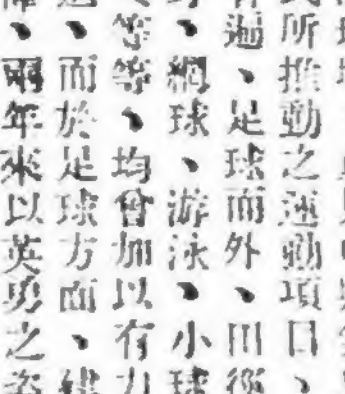 所推動之運動項目、
遍、足球而外、田徑
、網球、游泳、小球
等等、均曾加以有力
、而於足球方面、建
、兩年來以英勇之姿